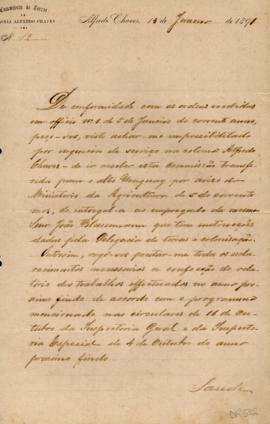 Commissão de Terras
Colonia Alfredo Chaves
Nº 12
Alfredo Chaves, 13 de Janeiro de 1891
De conformidade com as ordens recebidas
em officio Nº 1 de 5 de Janeiro do corrente anno,
peço-vos, visto achar-me impossibilitado
por urgencia de serviço na colonia Alfredo
Chaves - de ir receber esta Commissão transfe-
rida para o alto Uruguay por aviso do
Ministerio da Agricultura de 5 do corrente
mez, de entregal-a ao empregado da mesma
Snr João que tem instrucções
dadas pela Delegacia de terras e colonização.
Outrosim, rogo-vos prestar-me todos os escla-
recimentos necessarios a confecção do rela-
torio dos trabalhos effectuados no anno pro-
ximo findo de accordo com o programma
mencionado nas circulares de 16 de Ou-
tubro da Inspectoria Geral e da Inspecto-
ria Especial de 4 de Outubro do anno
proximo findo.
Saude